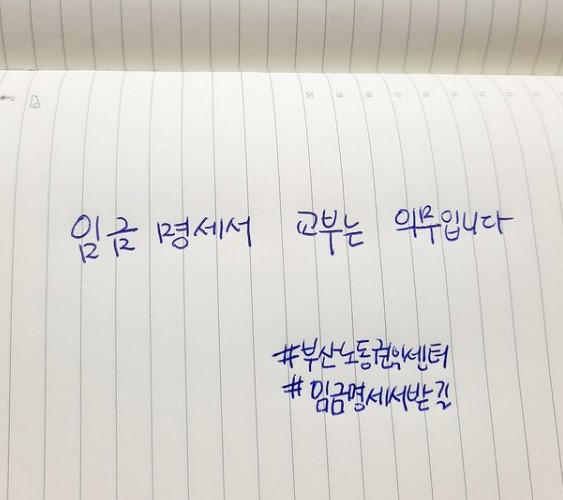 임금 명세서 교부는 의무입니다
#부산노동권익센터
#임금명세서받길